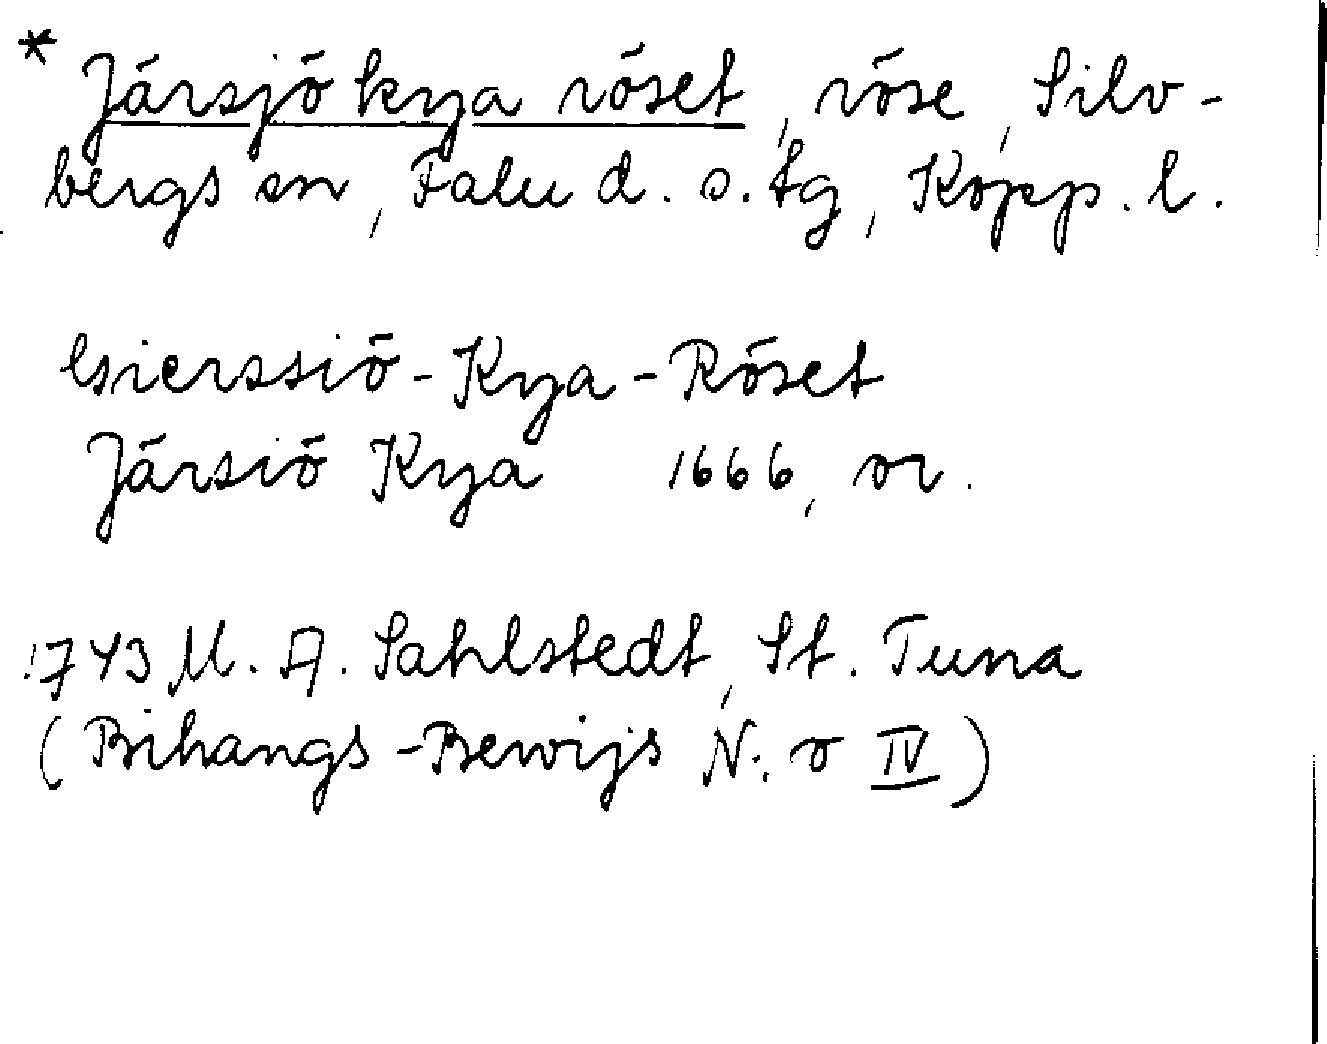 * Järsjö kya röset, röse, Silv-
bergs sn, Falu d. s. tg, Kopp. l.
Gierssiö-Kya-Röset
Järsiö Kya 1666, or.
1743 M. A. Sahlstedt, St. Tuna
(Bihangs-Bewijs N:o IV)